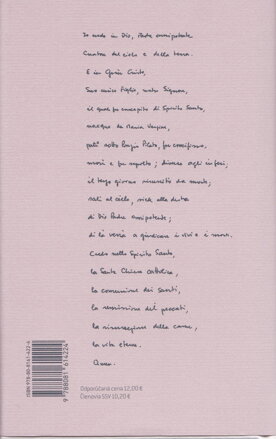 Io credo in Dio, Padre onnipotente
Creatore del cielo e della terra.
E in Gesù Cristo,
Suo unico Figlio, nostro Signore,
il quale fu concepito di Spirito Santo,
nacque da Maria Vergine,
patì sotto Ponzio Pilato, fu crocifisso,
morì e fu sepolto; discese agli inferi,
il terzo giorno risuscitò da morte;
salì al cielo, siede alla destra
di Dio Padre onnipotente;
di là verrà a giudicare i vivi e i morti.
Credo nello Spirito Santo,
la Santa Chiesa cattolica,
la comunione dei Santi,
la remissione dei peccati,
la risurrezione della carne,
la vita eterna.
Amen.
ISBN 978-80-8161-422-4
9 788081 614224
Odporúčaná cena 12,00 €
Členovia SSV 10,20 €